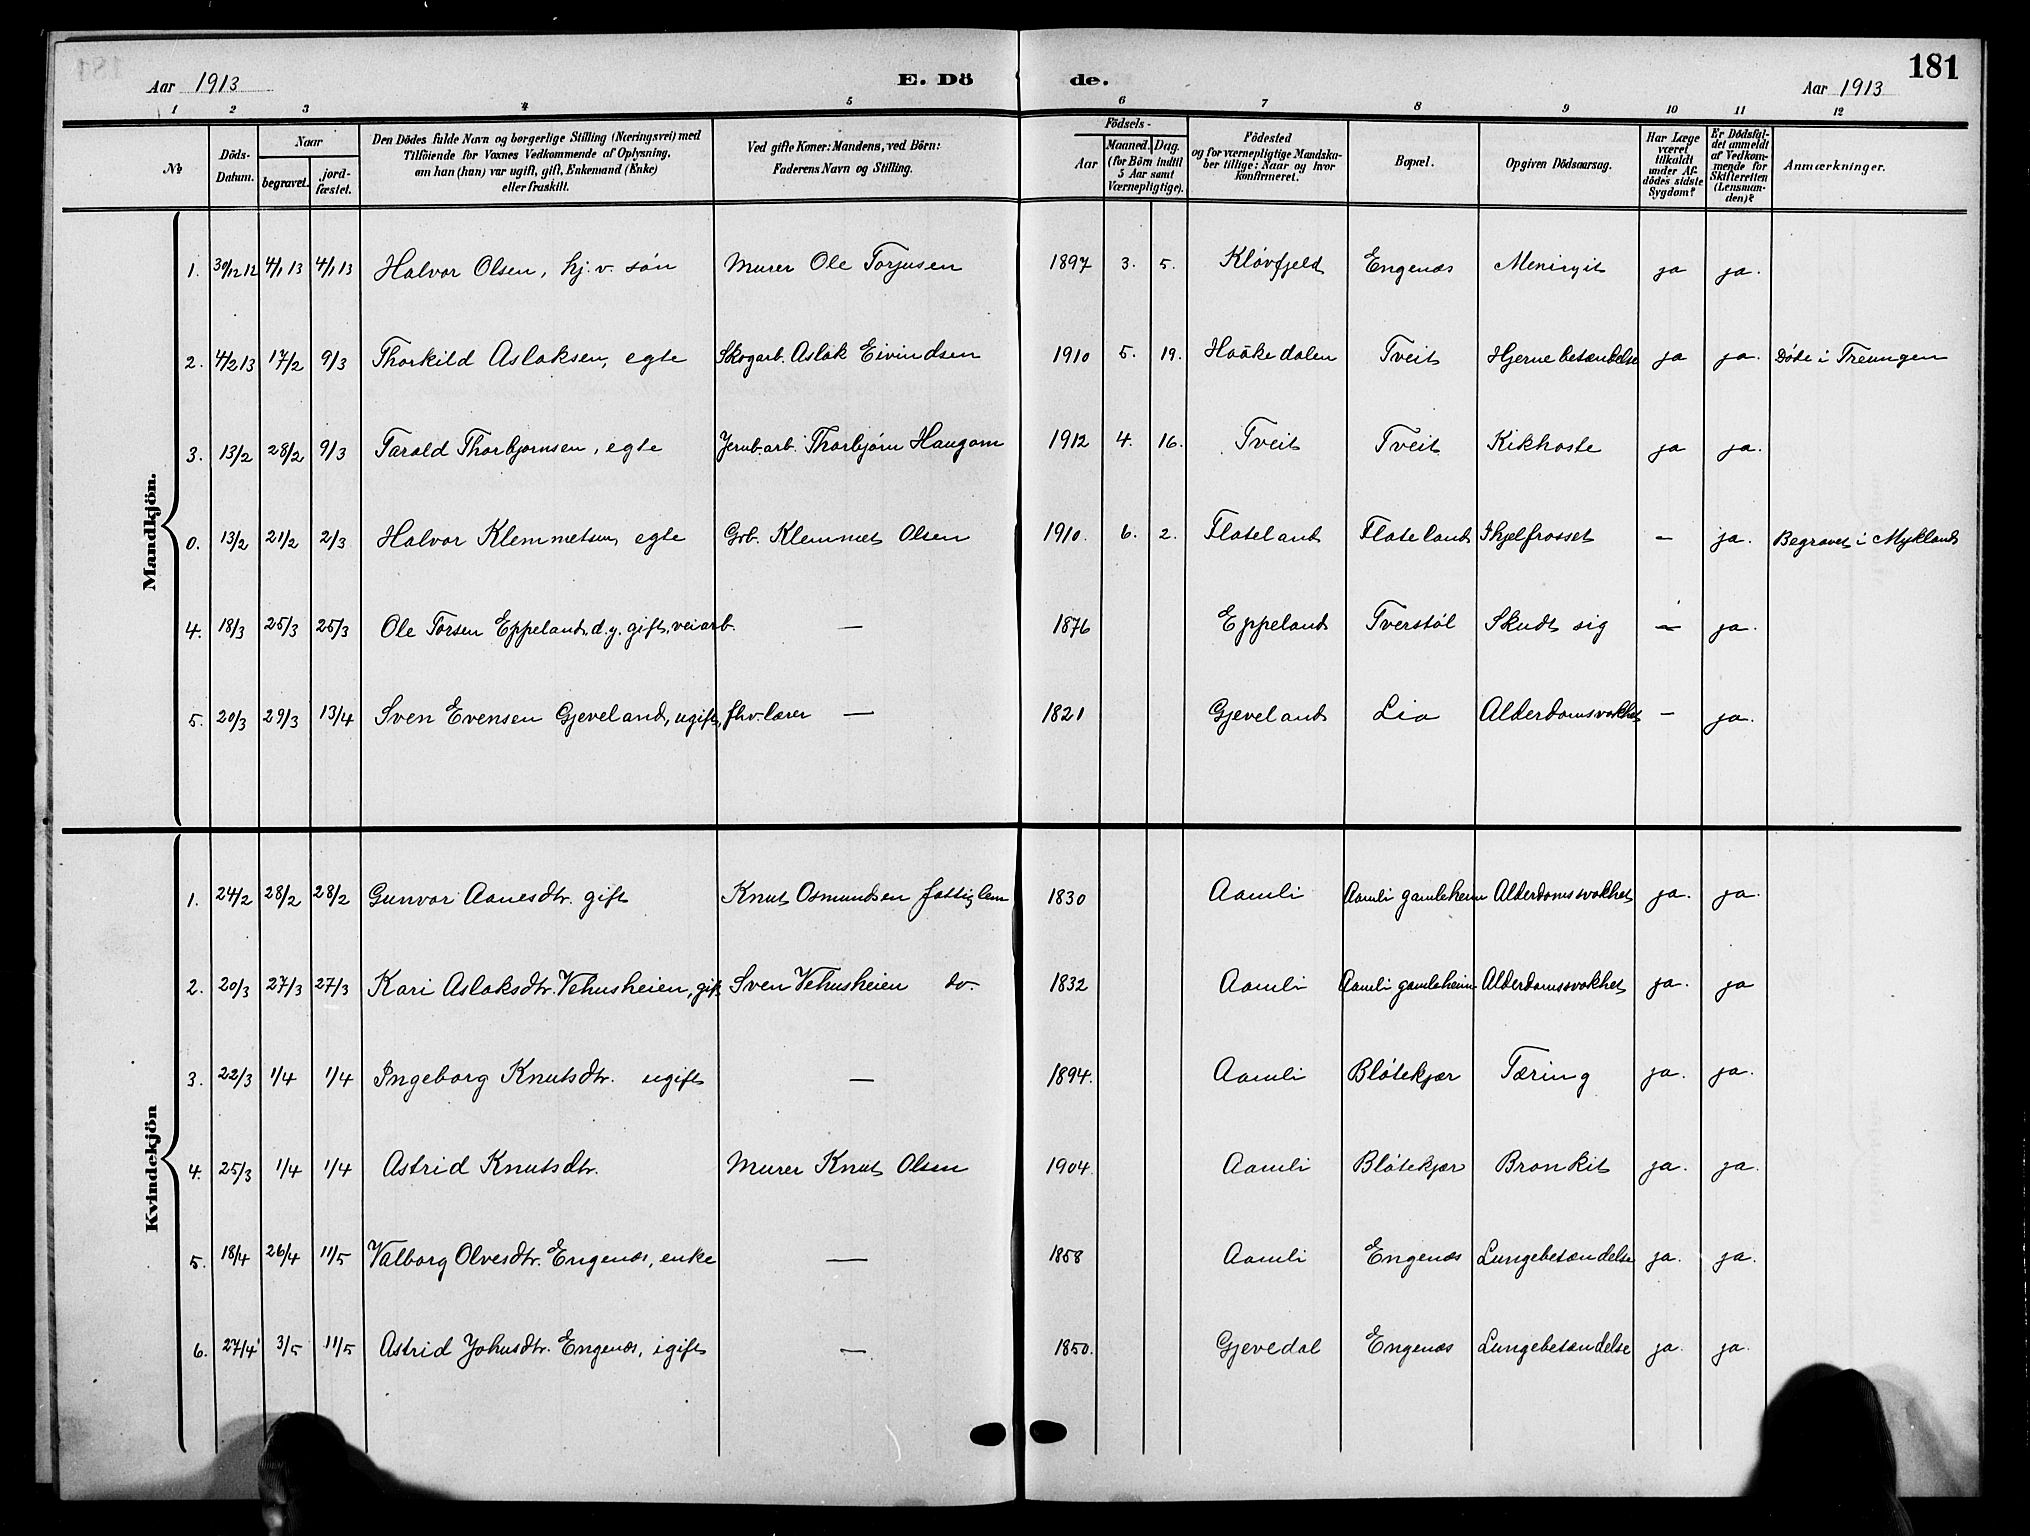 181
Aar 1913 E. Dö de. Aar 1913
1 2 3 4 5 6 7 8 9 10 11 12
No
Döds-Datum.
Naar
begravet.
jord-fæstet.
Den Dödes fulde Navn og borgerlige Stilling (Næringsvei) med
Tilföiende for Voxnes Vedkommende af Oplysning,
om han (hun) var ugift, gift, Enkemand (Enke)
eller fraskilt.
Ved gifte Koner: Mandens, ved Börn:
Faderens Navn og Stilling.
Födsels-
Aar
Maaned. Dag.
(for Börn indtil
5 Aar samt
Værnepligtige).
Födested
og for værnepligtige Mandska-
ber tillige: Naar og hvor
konfirmeret.
Bopæl.
Opgiven Dödsaarsag.
Har Læge
været
tilkaldt
under Af-
dödes sidste
Sygdom?
Er Dödsfal-
det anmeldt
af Vedkom-
mende for
Skifteretten
(Lensman-
den)?
Anmærkninger.
Mandkjön.
1. 30/12 12 4/1 13 4/1 13 Halvor Olsen, hj. v. søn Murer Ole Torjusen 1897 3. 5. Kløvfjeld Engenæs Meningit ja ja.
2. 4/2 13 17/2 9/3 Thorkild Aslaksen, egte Skogarb. Aslak Eivindsen 1910 5. 19. Haakedalen Tveit Hjernebetændelse ja ja. Døde i Treungen
3. 13/2 28/2 9/3 Tarald Thorbjørnsen, egte Jernb.arb. Thorbjørn Haugom 1912 4. 16. Tveit Tveit Kikhoste ja ja.
0. 13/2 21/2 2/3 Halvor Klemmetsen, egte Grb. Klemmet Olsen 1910. 6. 2. Flateland Flateland Ihjelfrosset – ja. Begravet i Mykland
4. 18/3 25/3 25/3 Ole Torsen Eppeland, d.y. gift, veiarb. — 1876 Eppeland Tverstøl Skudt sig – ja.
5. 20/3 29/3 13/4 Sven Evensen Gjeveland, ugift, fhv. lærer — 1821 Gjeveland Lia Alderdomsvakhet – ja.
Kvindekjön
1. 24/2 28/2 28/2 Gunvor Aanesdtr. gift Knut Osmundsen fattiglem 1830 Aamli Aamli gamleheim Alderdomssvakhet ja. ja.
2. 20/3 27/3 27/3 Kari Aslaksdtr. Vehusheien, gift Sven Vehusheien do. 1832 Aamli Aamli gamleheim Alderdomssvakhet ja. ja
3. 22/3 1/4 1/4 Ingeborg Knutsdtr. ugift — 1894. Aamli Bløtekjær Tæring ja. ja.
4. 25/3 1/4 1/4 Astrid Knutsdtr. Murer Knut Olsen 1904. Aamli Bløtekjær Bronkit ja. ja.
5. 18/4 26/4 11/5 Valborg Olvesdtr. Engenæs, enke — 1858 Aamli Engenæs Lungebetændelse ja. ja.
6. 27/4 3/5 11/5 Astrid Johnsdtr. Engenæs, igift — 1850. Gjevedal Engenæs Lungebetændelse ja. ja.